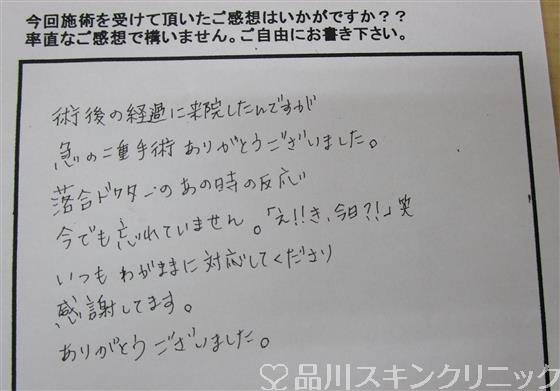 今回施術を受けて頂いたご感想はいかがですか？？
率直なご感想で構いません。ご自由にお書き下さい。
術後の経過に来院したんですが
急の二重手術ありがとうございました。
落合ドクターのあの時の反応
今でも忘れていません。「え!!き、今日?!」笑
いつもわがままに対応してくださり
感謝してます。
ありがとうございました。
品川スキンクリニック